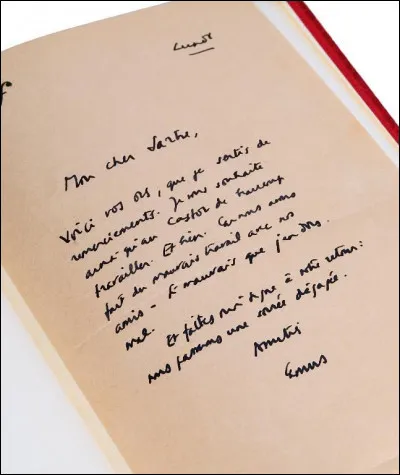 Lundi
Mon cher Sartre,
Voici vos , que je sortis de
remerciements. Je vous souhaite
ainsi qu'au Castor de beaucoup
travailler. Et bien. Car nous avons
fait du mauvais travail avec nos
amis - Si mauvais que j'en dors
mal.
Et faites moi signe à votre retour:
nous passerons une soirée dégagée.
Amitiés